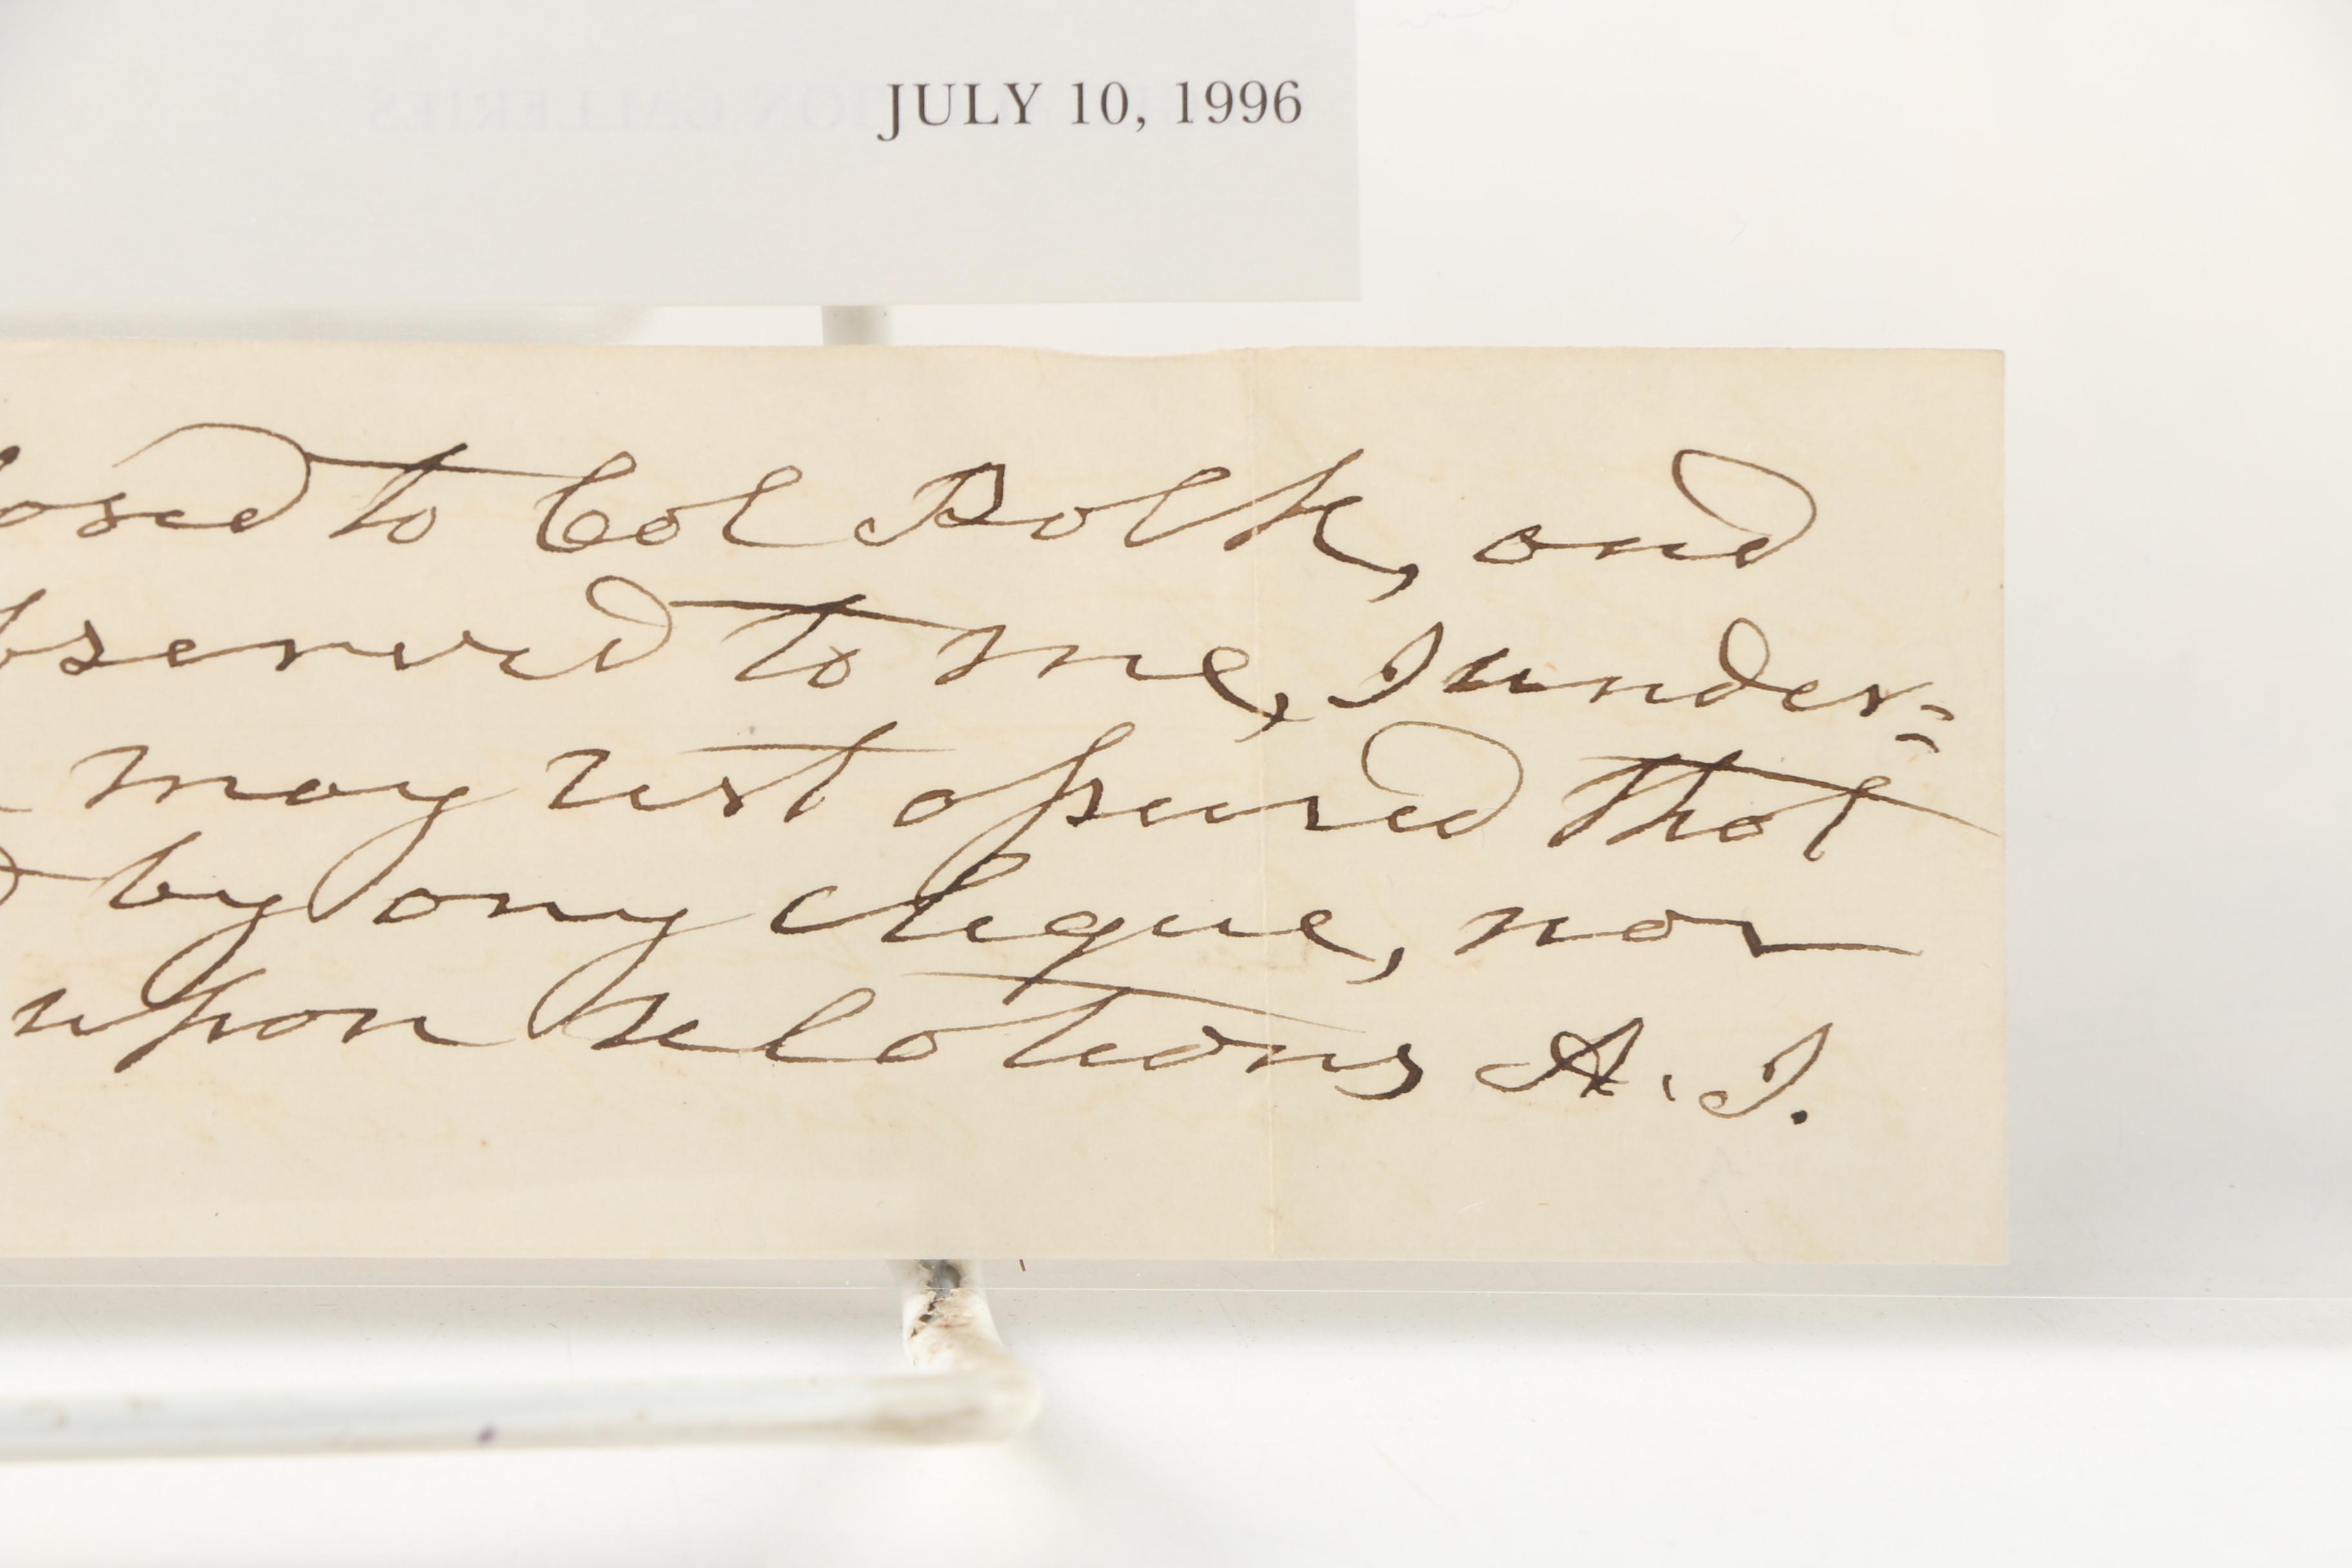 JULY 10, 1996
osed to Col Polk, and
bserved to me, I under=
may rest assured that
by any cleque, nor
upon relations A. J.